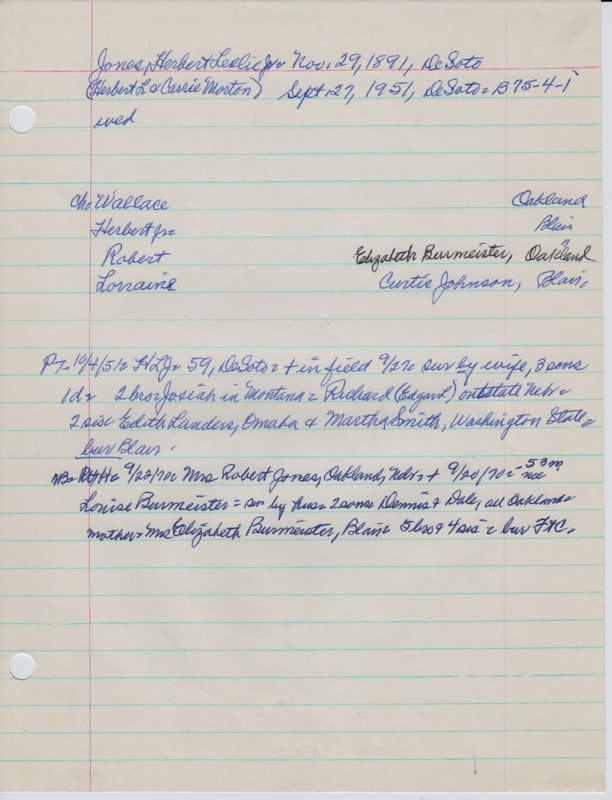 Jones, Herbert Leslie Jr = Nov. 29, 1891, DeSoto
(Herbert L & Carrie Morton) Sept 27, 1951, DeSoto = B75-4-1
wed
Ch = Wallace Oakland
Herbert Jr = Blair
Robert Elizabeth Burmeister, Oakland
Lorraine Curtis Johnson, Blair =
PT = 10/4/51 = HLJ = 59, DeSoto = + in field 9/27 = sur by wife, 3 sons
1d = 2 bro = Josiah in Montana = Richard (Edgar L) outstate Nebr =
2 sis = Edith Landers, Omaha & Martha Smith, Washington State =
bur Blair.
9/22/70 = Mrs Robert Jones, Oakland, Nebr = + 9/20/70 = 53 nee
Louise Burmeister = sur by hus = 2 sons = Dennis & Dale, all Oakland =
mother = Mrs Elizabeth Burmeister, Blair = 5 bro & 4 sis = bur